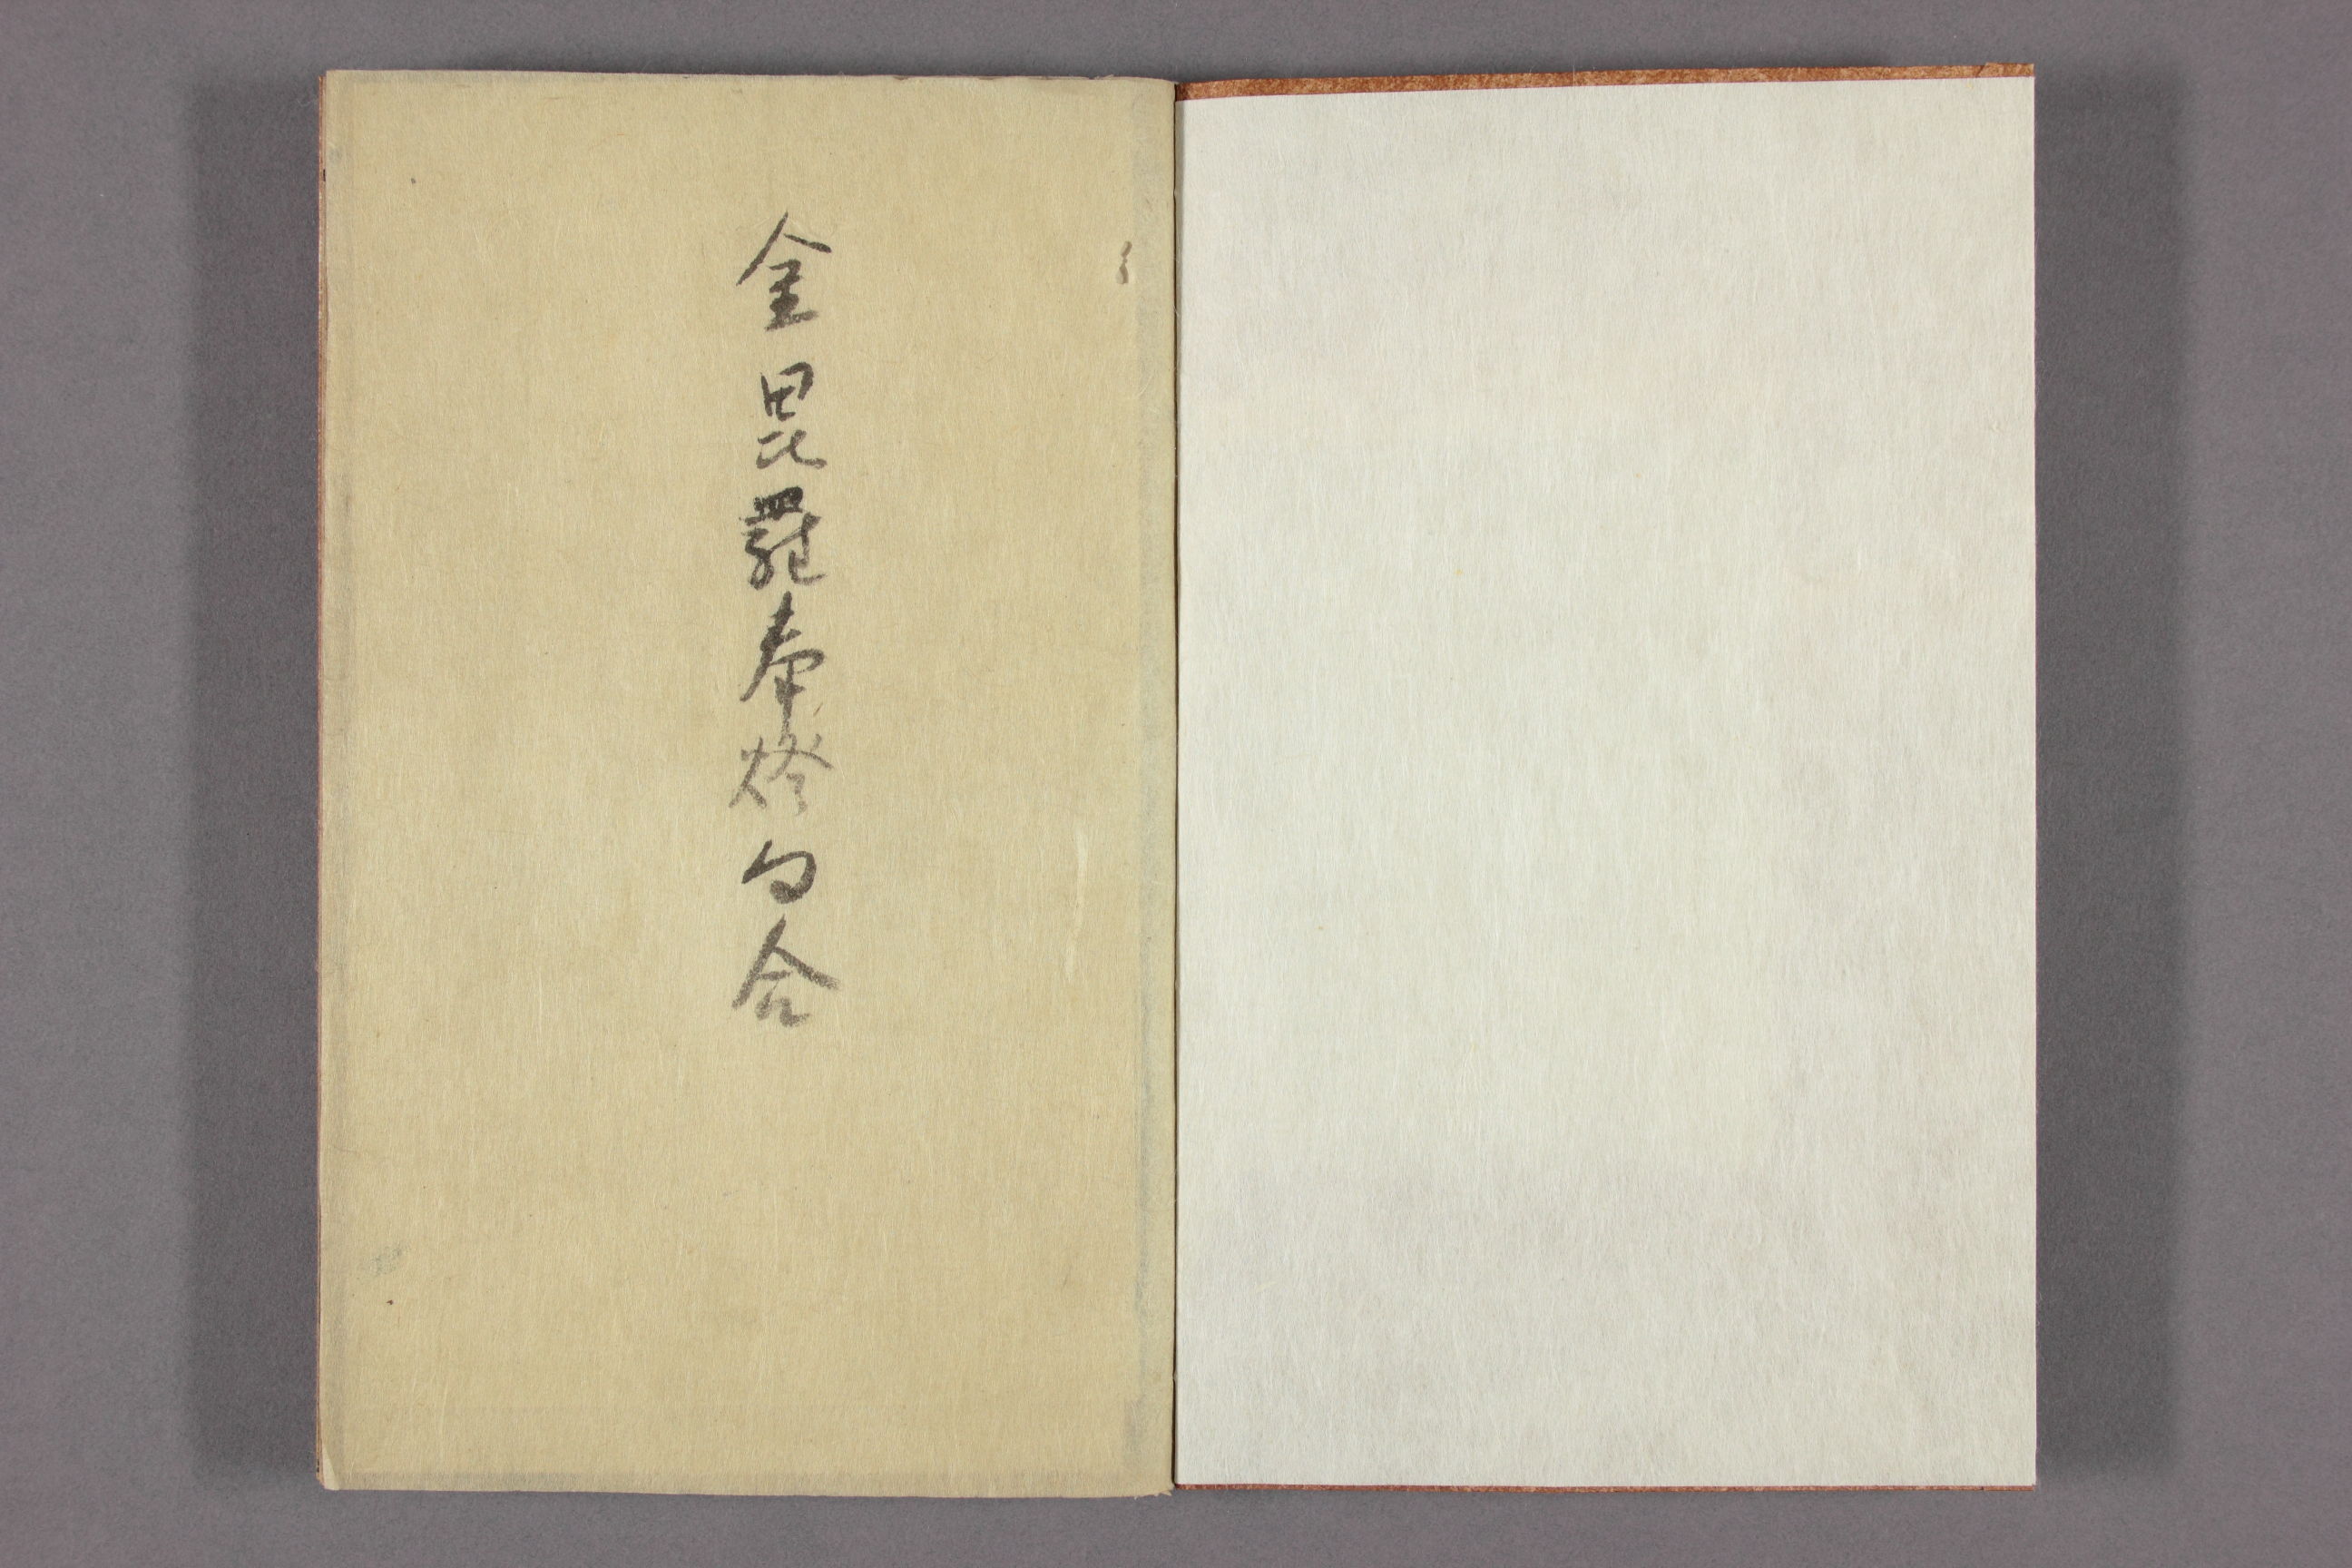 金毘羅奉燈句合